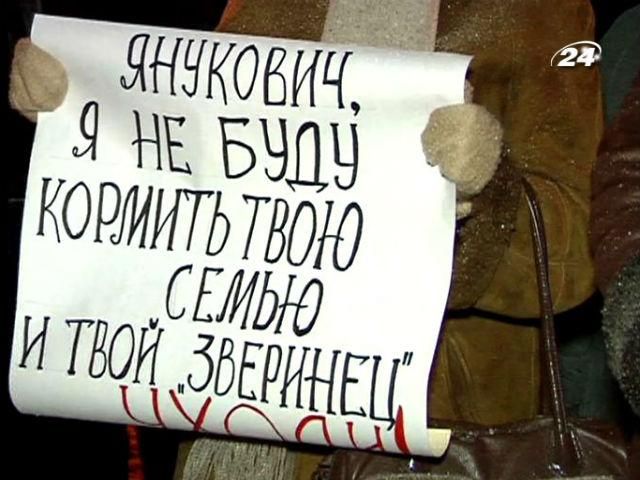 24
ЯНУКОВИЧ,
Я НЕ БУДУ
КОРМИТЬ ТВОЮ
СЕМЬЮ
И ТВОЙ "ЗВЕРИНЕЦ"
УХОДИ!